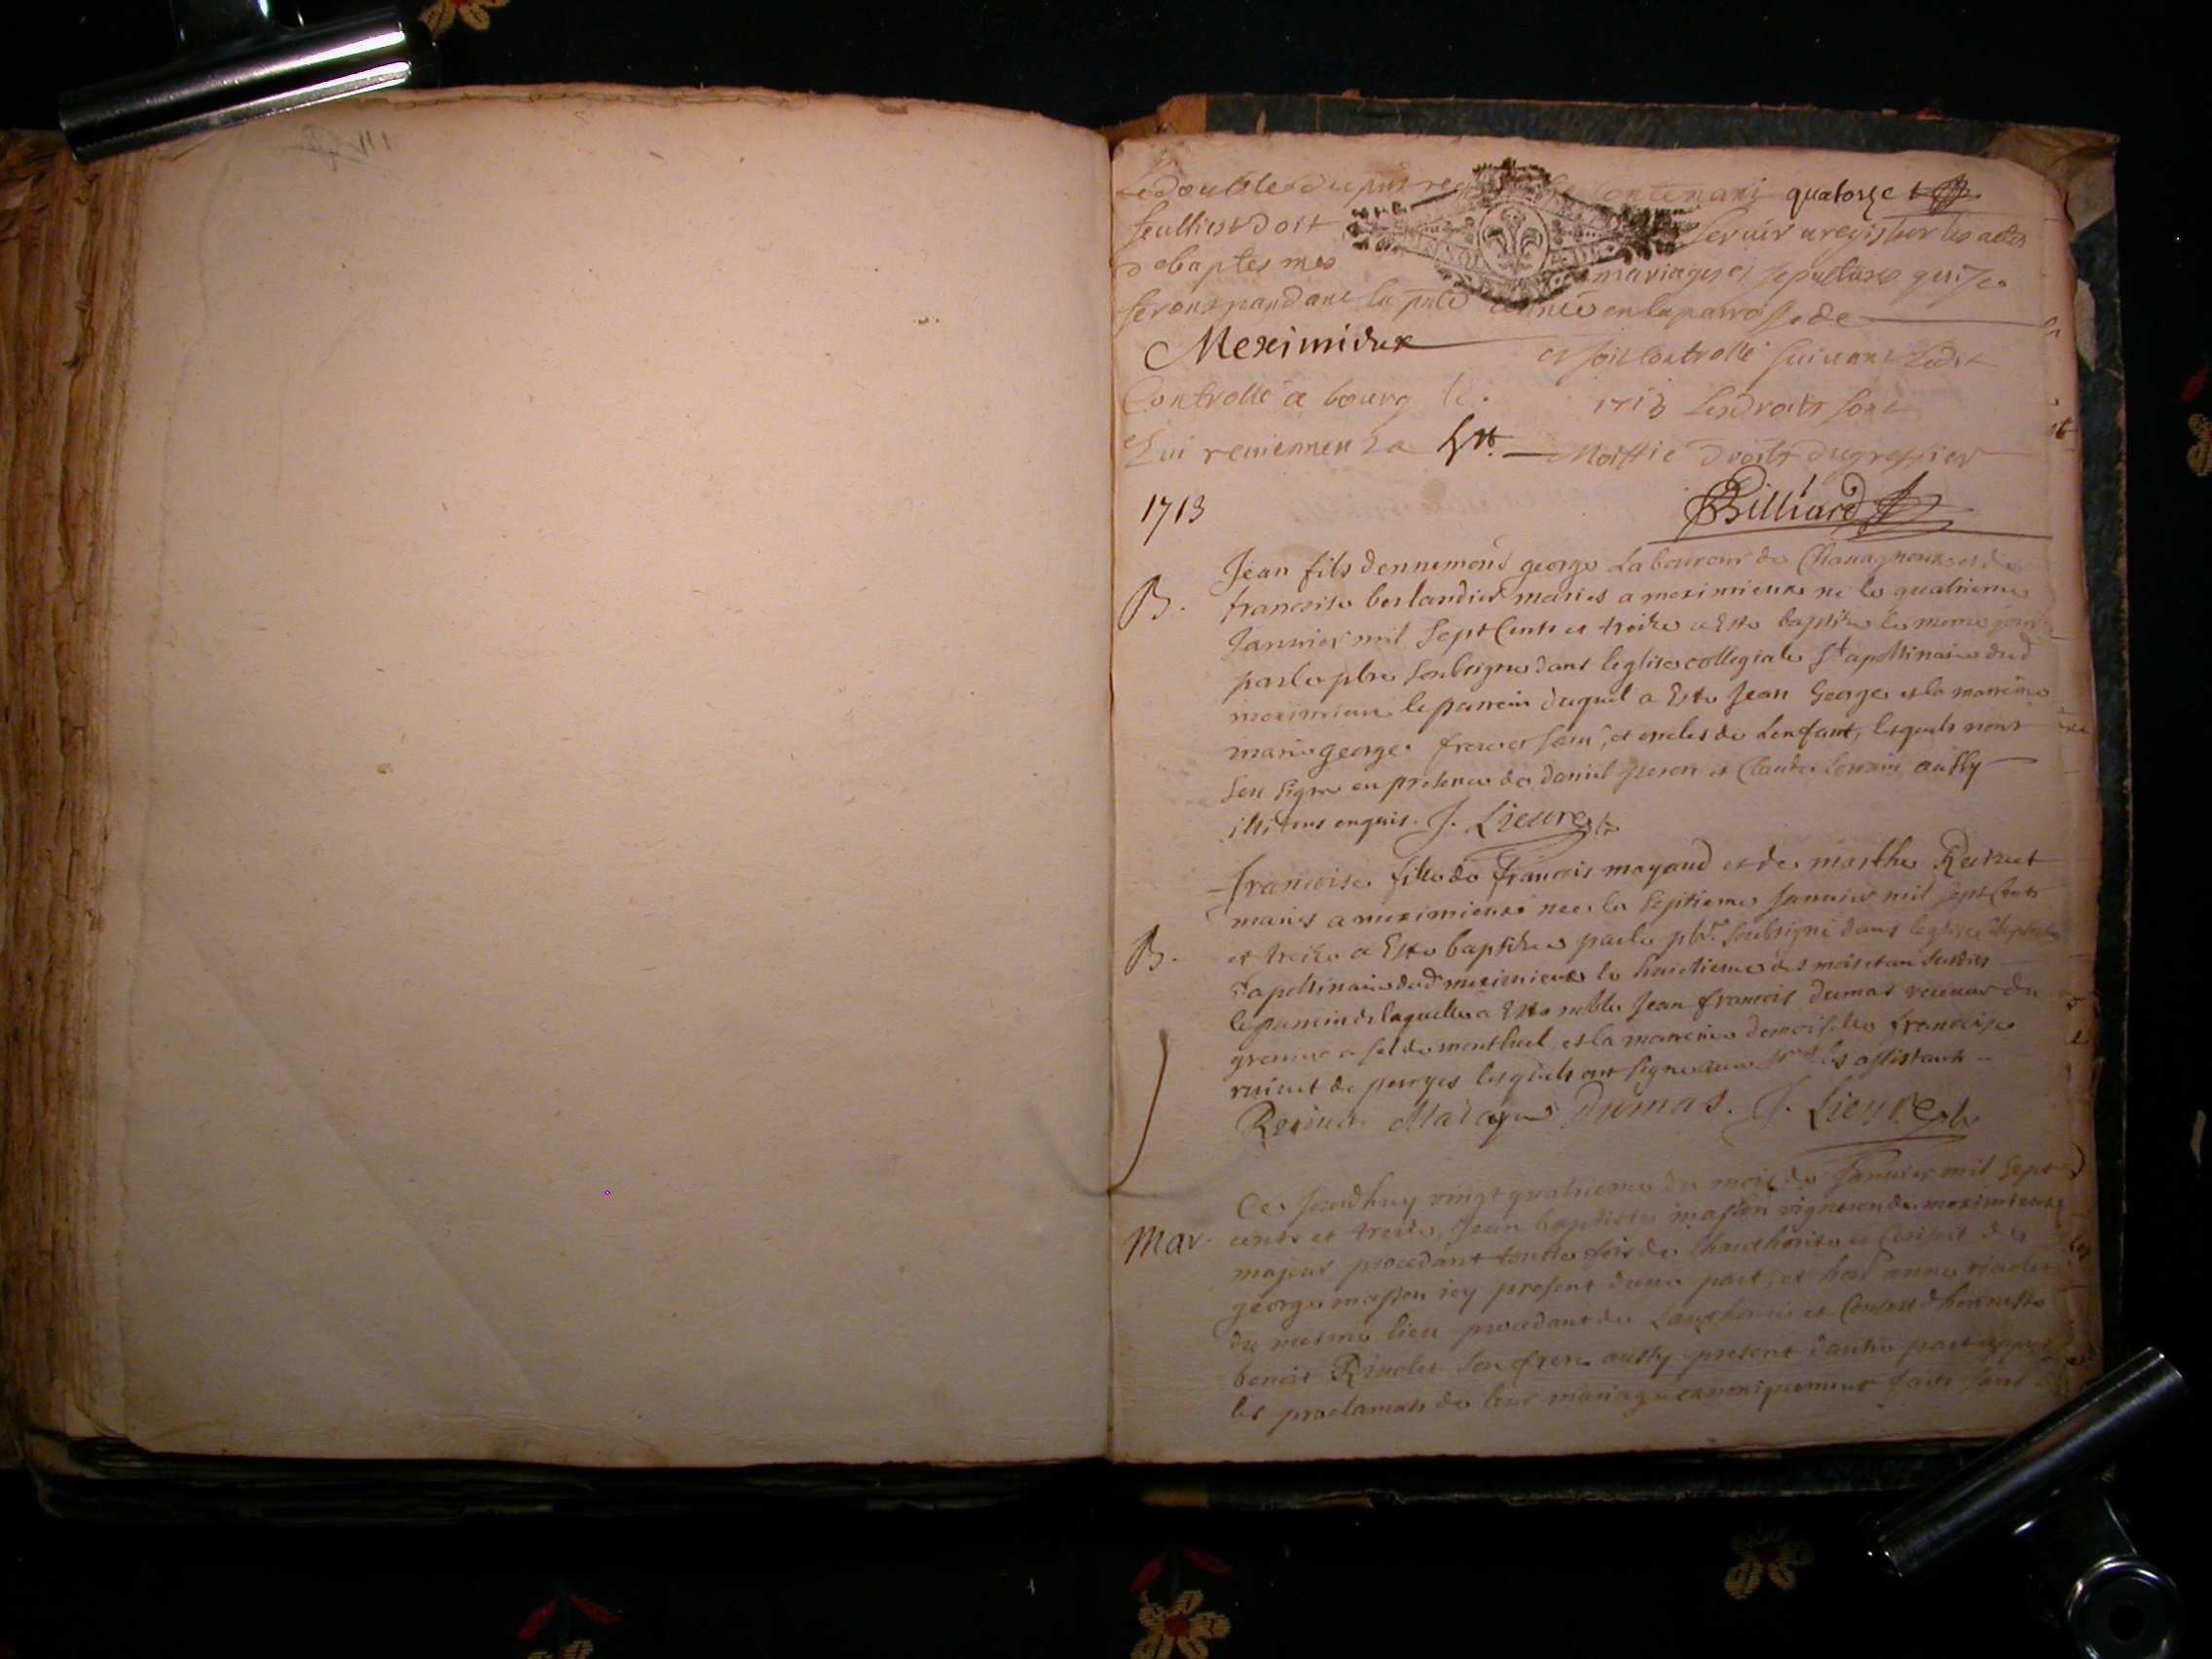 Le double du pnt re contenant quatorze
feulliest doit servir a registrer les actes
de baptesmes mariages et sepultures qui se
feront pandant la pnte année en la parroisse de
Meximieux et soit controllé suivant Ledit
Controllé a bourg le. 1713 Les droits sont
Lui reviennent a Moittie droits du greffier
1713
Billiard
Jean fils dennemond george Laboureur de Chavagneux et de
B. francoise berlandier mariés a meximieux né le quatrieme
Janvier mil sept Cents et treize a Este baptisé le meme jour
par le pbre soubsigné dans leglise collegiale St apollinaire dud
meximieux le parrein duquel a Este Jean George et la marreine
marie george frere et seur, et oncles de Lenfant, lesquels nont
sceu signer en presence de daniel et Claude aussy
illiterés enquis. J. Lieure pb
francoise fille de francois mayaud et de marthe
mariés a meximieux née le septieme Janvier mil sept Cents
B. et treize a Este baptisée par le pbr. soubsigné dans leglise
St apollinaire dud meximieux le huictieme des mois et an susdits
le parrein de laquelle a Este noble Jean francois dumas receveur du
grenier a sel de montluel et la marreine demoiselle francoise
de peroges lesquels ont signé avec les assistants
Dumas. J. Lieure pb
Ce Jourdhuy vingt quatrieme du mois de Janvier mil sept
Mar. cents et treize, Jean baptiste masson vigneron de meximieux
majeur procedant toutte fois de lhauthorité et Consent de
george masson icy present dune part, et hon anne
du mesme lieu procedant de Lauthorité et Consent dhonneste
benoit Rivolet son frere aussy present dautre part apres
les proclamats de leur mariage canoniquement faits sans